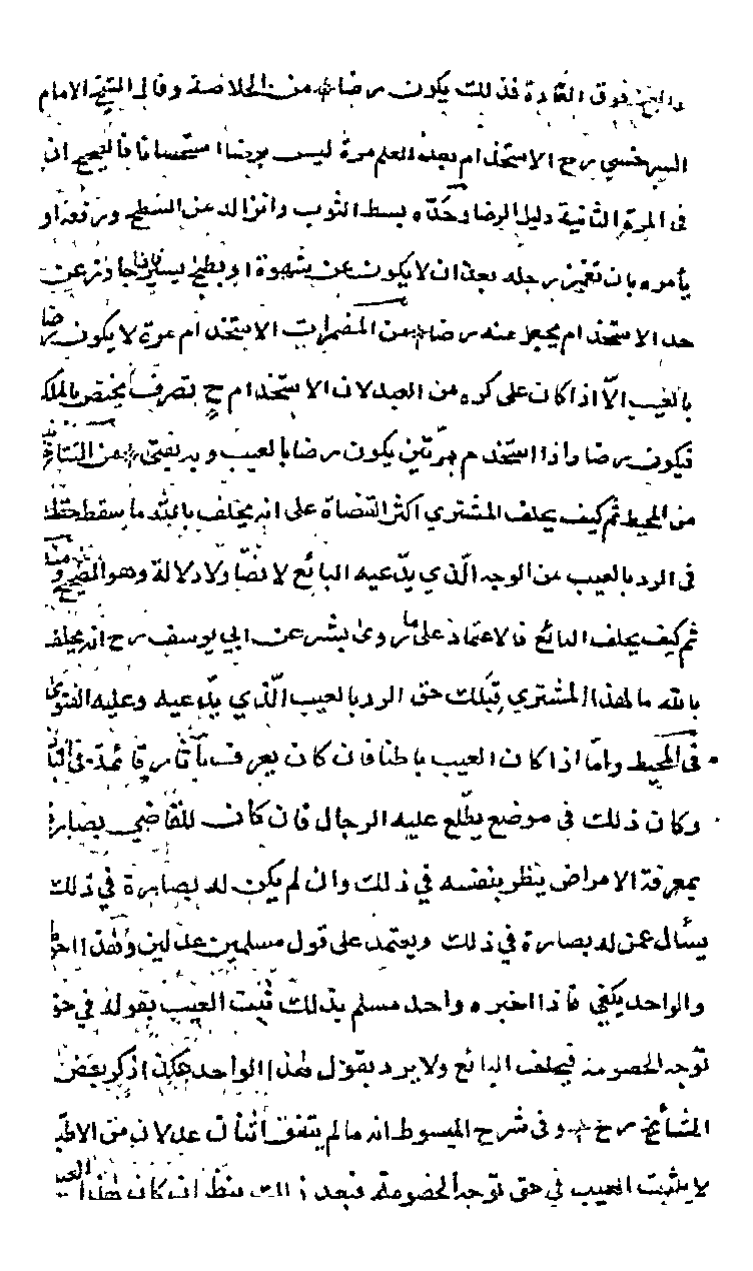 فوق العادة فذلك يكون رضا من الخلاصة وقال الشيخ الامام
السرخسي رح الاستخدام بعد العلم مرة ليس برضا استحسانا فالصحيح ان
في المرة الثانية دليل الرضا وحده بسط الثوب وانزاله عن السطح ورفعه او
يأمره بان تغمز رجله بعد ان لا يكون عن شهوة او يطبخ يسيرا فان جاوز عن
حد الاستخدام يجعل عنه رضا من المضمرات الاستخدام مرة لا يكون رضا
بالعيب الّا اذا كان على كره من العبد لان الاستخدام ح تصرف يختص بالملك
فيكون رضا واذا استخدم مرتين يكون رضا بالعيب وبه يفتى من
من المحيط ثم كيف يحلف المشتري اكثر القضاة على انه يحلف بالله ما سقط حقك
في الرد بالعيب من الوجه الّذي يدّعيه البائع لا نصّا ولا دلالة وهو الصحيح
ثم كيف يحلف البائع فالاعتماد على ما روى بشر عن ابي يوسف رح انه يحلف
بالله ما لهذا المشتري قبلك حق الرد بالعيب الّذي يدّعيه وعليه الفتوى
في المحيط وامّا اذا كان العيب باطنا فان كان يعرف بآثار قائمة في
وكان ذلك في موضع يطّلع عليه الرجال فان كان للقاضي بصارة
بمعرفة الامراض ينظر بنفسه في ذلك وان لم يكن له بصارة في ذلك
يسأل عمن له بصارة في ذلك ويعتمد على قول مسلمين عدلين وهذا احوط
والواحد يكفي فاذا اخبره واحد مسلم بذلك ثبت العيب بقوله في حق
توجه الخصومة فيحلف البائع ولا يرد بقول هذا الواحد هكذا ذكر بعض
المشايخ رح وفي شرح المبسوط انه ما لم يتفق اثنان عدلان من الاطبّ
لا يثبت العيب في حق توجه الخصومة فبعد ذلك ينظر ان كان هذا العيب